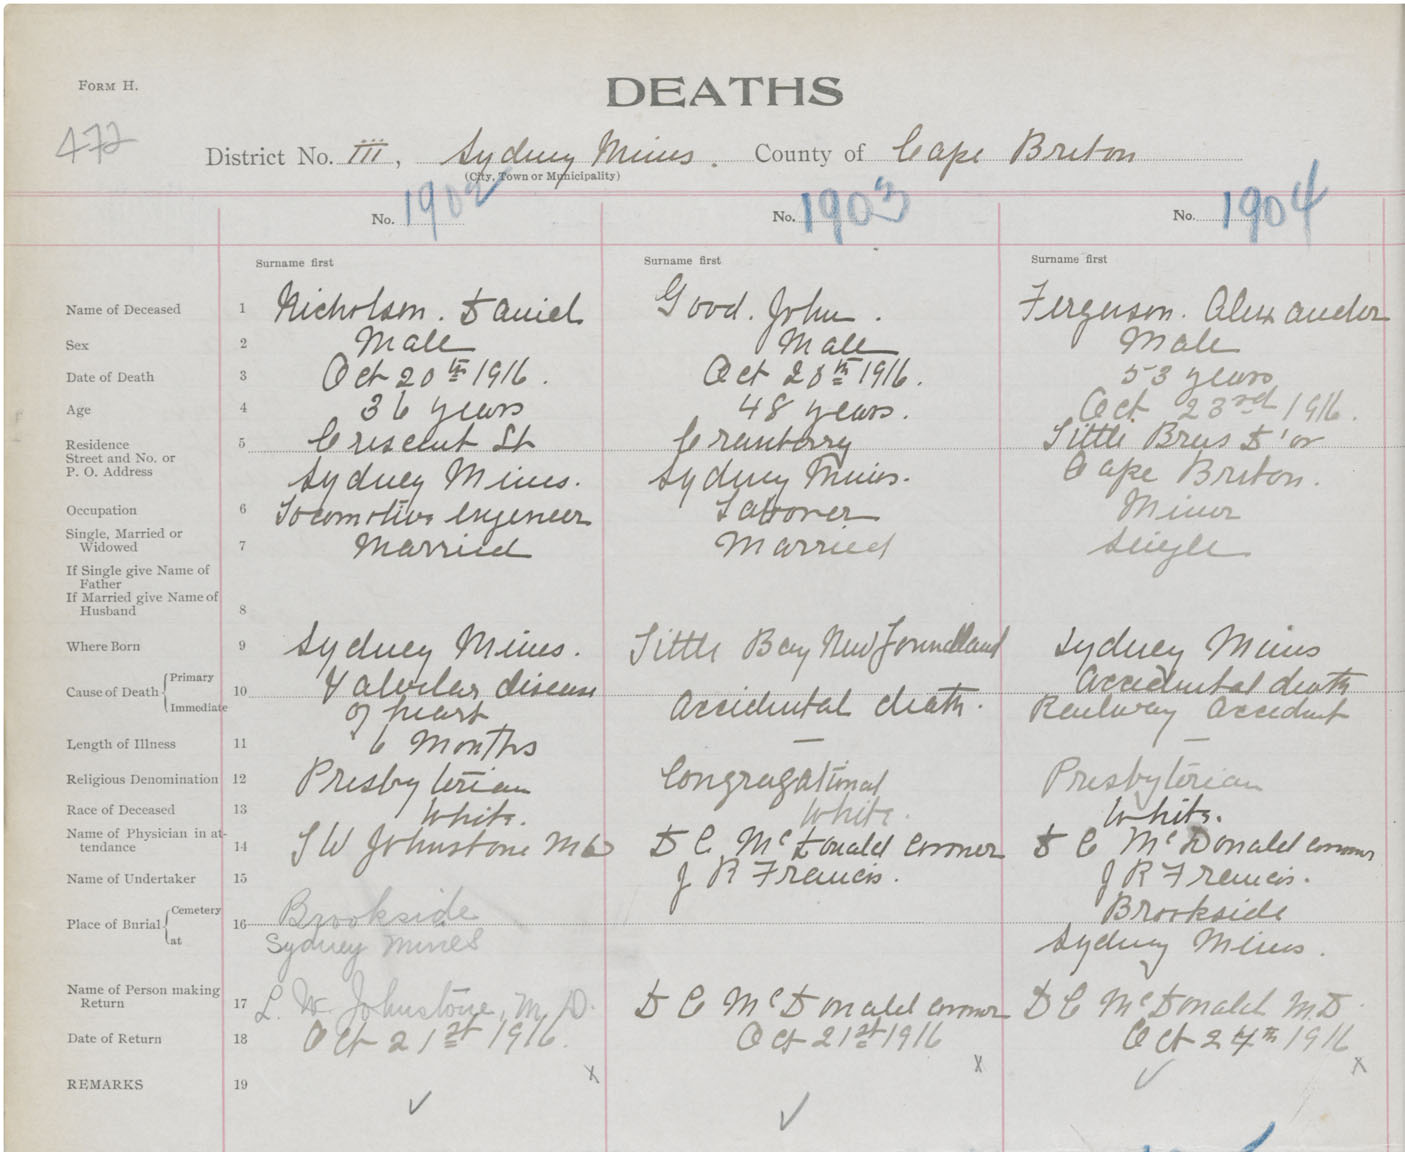 FORM H.
DEATHS
472
District No. III, Sydney Mines. County of Cape Breton
(City, Town or Municipality)
No. 1902 No. 1903 No. 1904
Surname first Surname first Surname first
Name of Deceased 1 Nicholson. Daniel Good. John. Ferguson. Alexander
Sex 2 Male Male Male
Date of Death 3 Oct 20th 1916. Oct 20th 1916. 53 years
Age 4 36 years 48 years. Oct 23rd 1916.
Residence 5 Crescent St Cranberry Little Bras D'or
Street and No. or
P. O. Address Sydney Mines. Sydney Mines. Cape Breton.
Occupation 6 Locomotive engineer Laborer Miner
Single, Married or
Widowed 7 Married Married Single
If Single give Name of
Father
If Married give Name of
Husband 8
Where Born 9 Sydney Mines. Little Bay Newfoundland Sydney Mines
Cause of Death Primary 10 Valvular disease Accidental death. Accidental death
Immediate of heart Railway Accident
Length of Illness 11 6 Months — —
Religious Denomination 12 Presbyterian Congragational Presbyterian
Race of Deceased 13 White. White. White.
Name of Physician in at-
tendance 14 L W Johnstone MD D C McDonald coroner D C McDonald coroner
Name of Undertaker 15 J R Francis. J R Francis.
Place of Burial Cemetery 16 Brookside Brookside
at Sydney Mines Sydney Mines.
Name of Person making
Return 17 L. W. Johnstone, M.D. D C McDonald coroner D C McDonald M.D.
Date of Return 18 Oct 21st 1916. Oct 21st 1916 Oct 27th 1916
REMARKS 19 x x x
✓ ✓ ✓